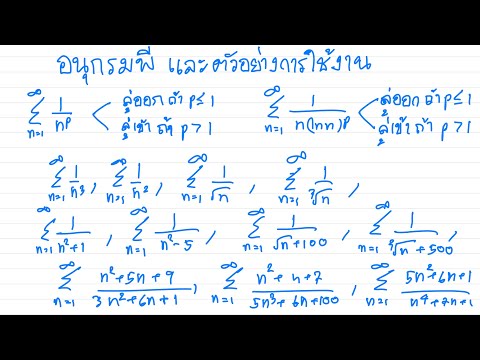 อนุกรมพี และตัวอย่างการใช้งาน
∑_{n=1}^{∞} 1/n^p < ลู่ออก ถ้า p ≤ 1 ลู่เข้า ถ้า p > 1 ∑_{n=1}^{∞} 1/(n(ln n)^p) < ลู่ออก ถ้า p ≤ 1 ลู่เข้า ถ้า p > 1
∑_{n=1}^{∞} 1/n^3, ∑_{n=1}^{∞} 1/n^2, ∑_{n=1}^{∞} 1/√n, ∑_{n=1}^{∞} 1/∛n,
∑_{n=1}^{∞} 1/(n^2+1), ∑_{n=1}^{∞} 1/(n^2-5), ∑_{n=1}^{∞} 1/(√n+100), ∑_{n=1}^{∞} 1/(∛n+500),
∑_{n=1}^{∞} (n^2+5n+9)/(3n^2+6n+1), ∑_{n=1}^{∞} (n^2+n+7)/(5n^3+6n+100), ∑_{n=1}^{∞} (5n^2+6n+1)/(n^4+7n+1)